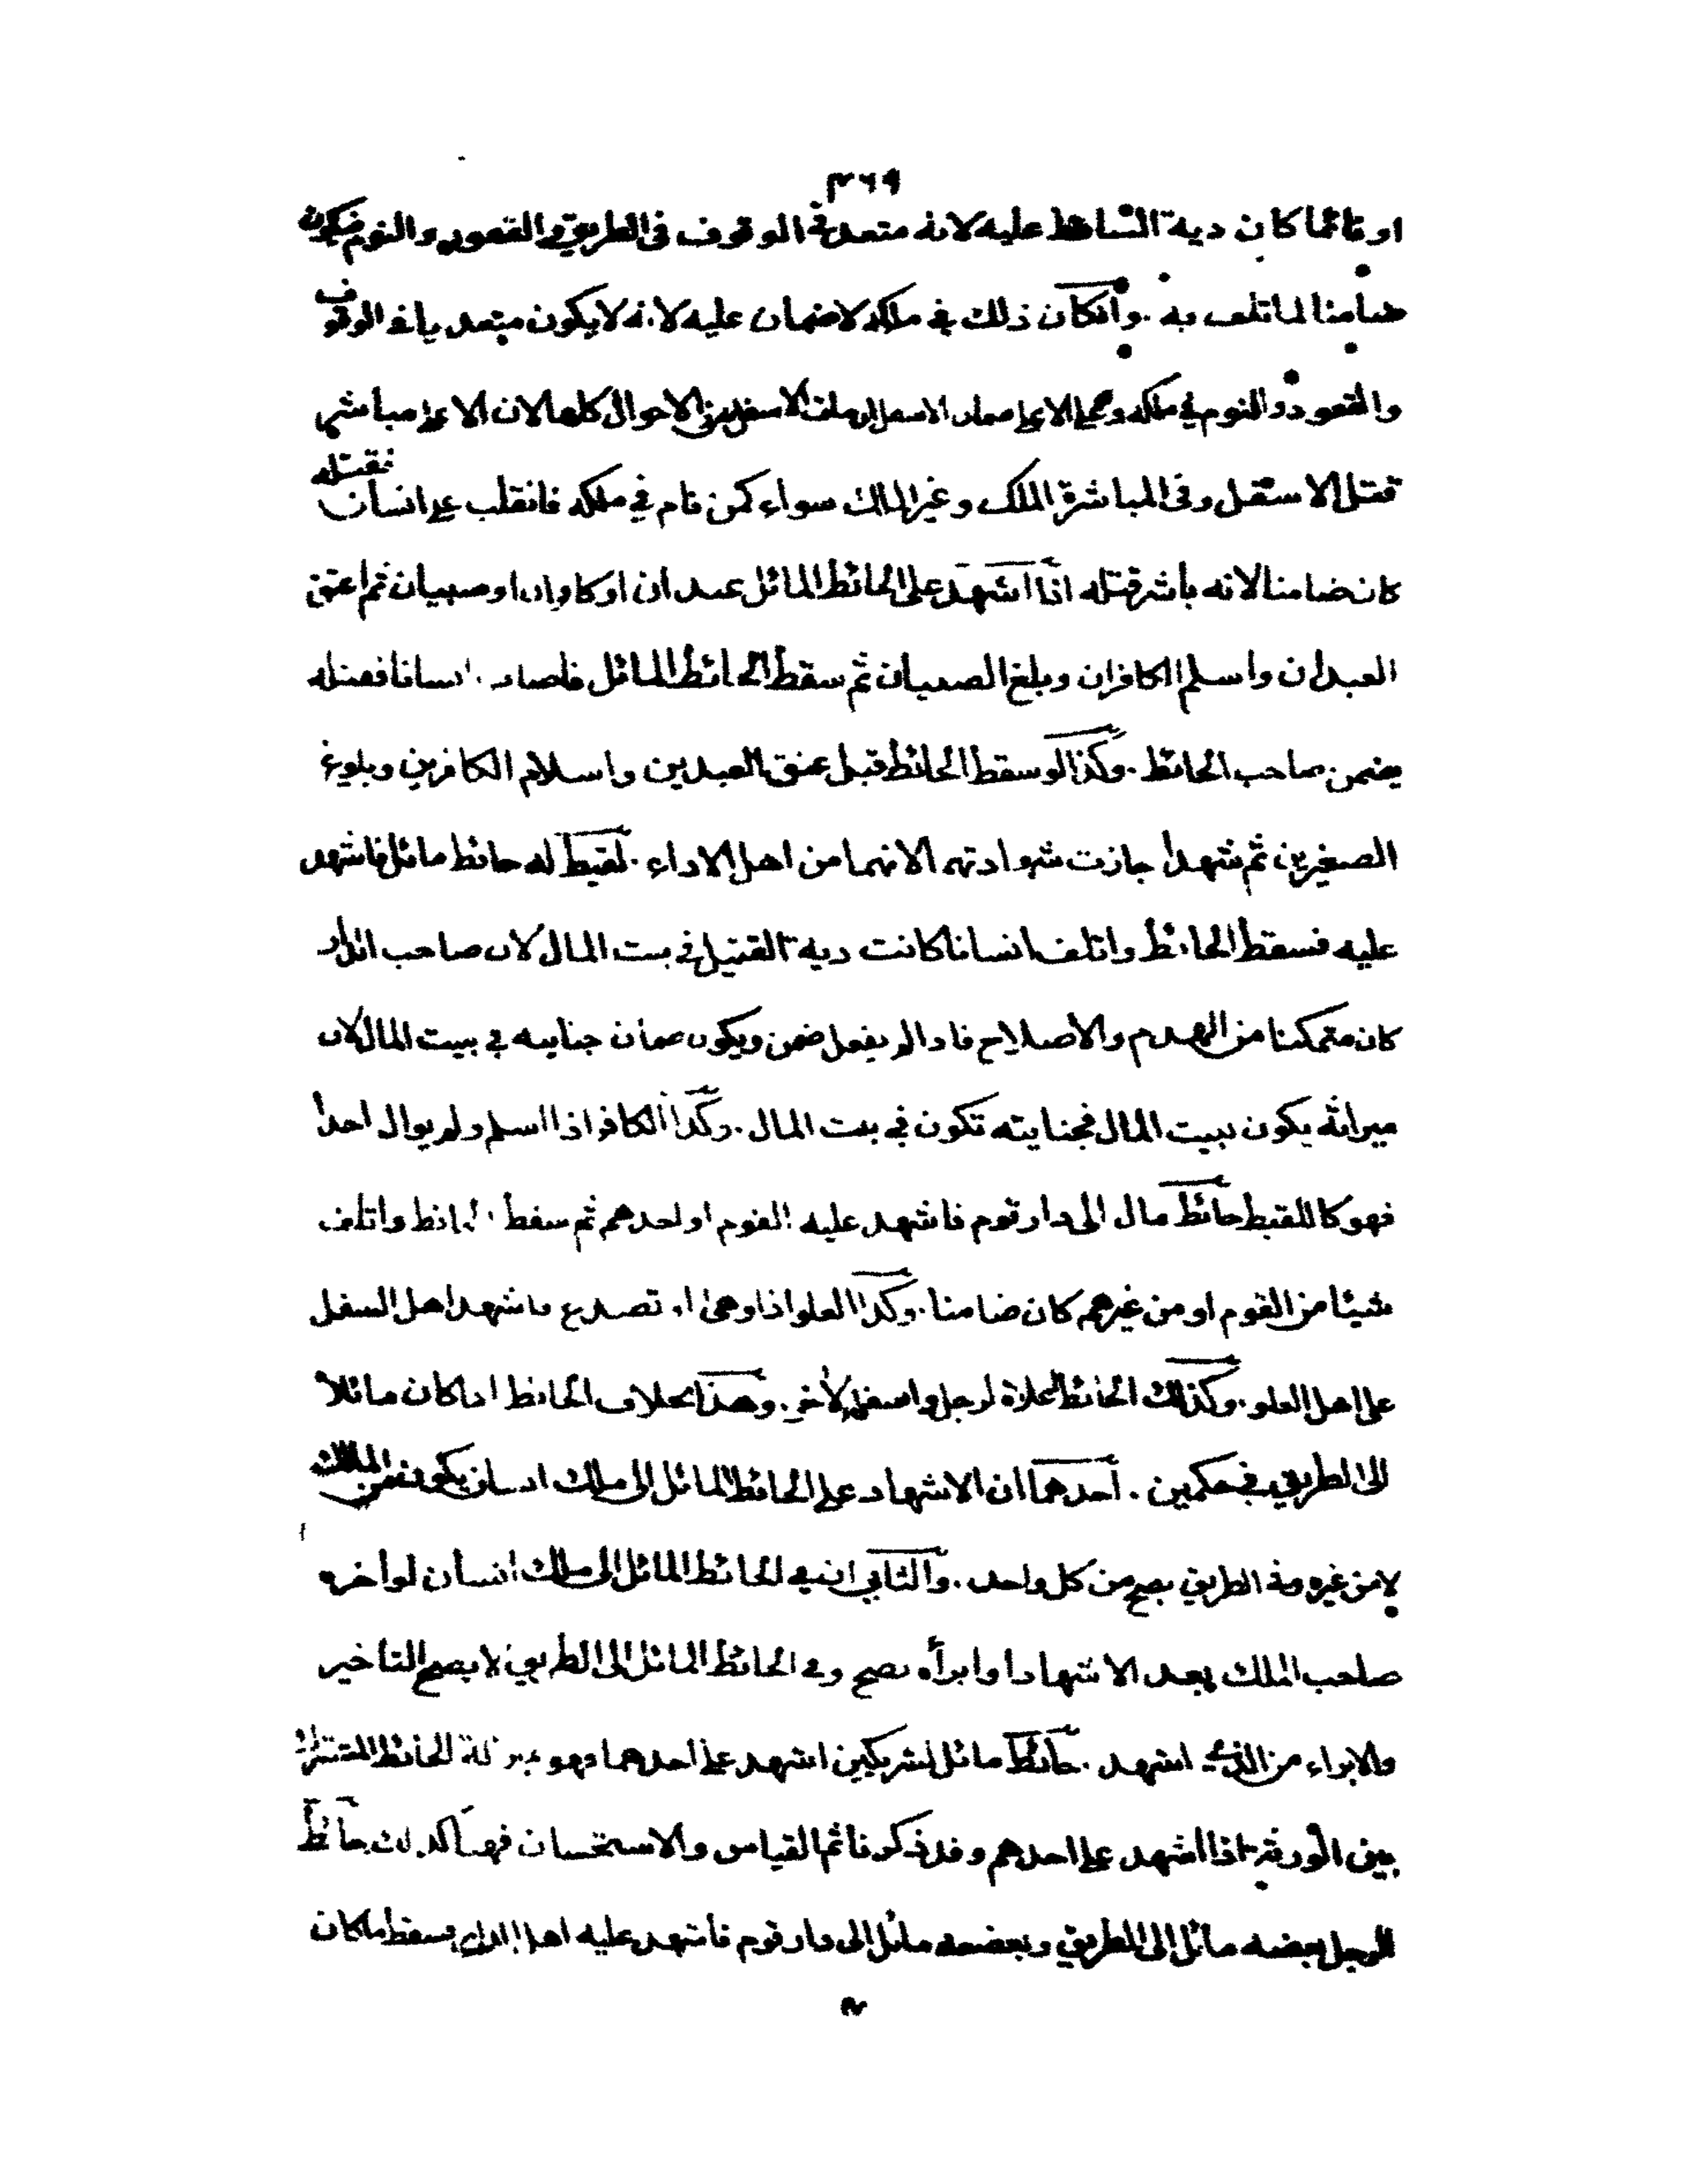 ٣٦٩
او نائما كان دية الساقط عليه لانه متعد فى الوقوف فى الطريق والقعود والنوم فيكون
ضامنا لما تلف به . وانكان ذلك في ملكه لاضمان عليه لانه لايكون متعديا في الوقوف
والقعود والنوم في ملكه وعلى الاعلى ضمان الاسفل الاسفل في الاحوال كلها لان الاعلى مباشر
قتل الاسفل وفى المباشرة الملك وغير الملك سواء كمن نام في ملكه فانقلب على انسان فقتله
كان ضامنا لانه باشر قتله اذا اشهد على الحائط المائل عبدان او كافران او صبيان ثم اعتق
العبدان واسلم الكافران وبلغ الصبيان ثم سقط الحائط المائل فاصاب انسانا فقتله
يضمن صاحب الحائط . وكذا لو سقط الحائط قبل عتق العبدين واسلام الكافرين وبلوغ
الصغيرين ثم شهدا جازت شهادتهما لانهما من اهل الاداء . لقيط له حائط مائل فاشهد
عليه فسقط الحائط واتلف انسانا كانت دية القتيل في بيت المال لان صاحب الدار
كان متمكنا من الهدم والاصلاح فاذا لم يفعل ضمن ويكون ضمان جنايته في بيت المال لان
ميراثه يكون لبيت المال فجنايته تكون في بيت المال . وكذا الكافر اذا اسلم ولم يوال احدا
فهو كاللقيط حائط مال الى دار قوم فاشهد عليه القوم او احدهم ثم سقط الحائط واتلف
شيئا من القوم او من غيرهم كان ضامنا . وكذا العلو اذا وهى او تصدع فاشهد اهل السفل
على اهل العلو . وكذلك الحائط اعلاه لرجل واسفله لآخر . وهذا بخلاف الحائط اذا كان مائلا
الى الطريق في حكمين . احدهما ان الاشهاد على الحائط المائل الى ملك انسان يكون من المالك
لا من غيره وفي الطريق يصح من كل واحد . والثاني ان في الحائط المائل الى ملك انسان لو اخره
صاحب الملك بعد الاشهاد او ابرأه يصح وفي الحائط المائل الى الطريق لا يصح التاخير
والابراء من الذي اشهد . حائط مائل لشريكين اشهد على احدهما فهو بمنزلة الحائط المشترك
بين الورثة اذا اشهد على احدهم وقد ذكرنا ثم القياس والاستحسان فهنا كذلك حائط
لرجل بعضه مائل الى الطريق وبعضه مائل الى دار قوم فاشهد عليه اهل الدار فسقط ما كان